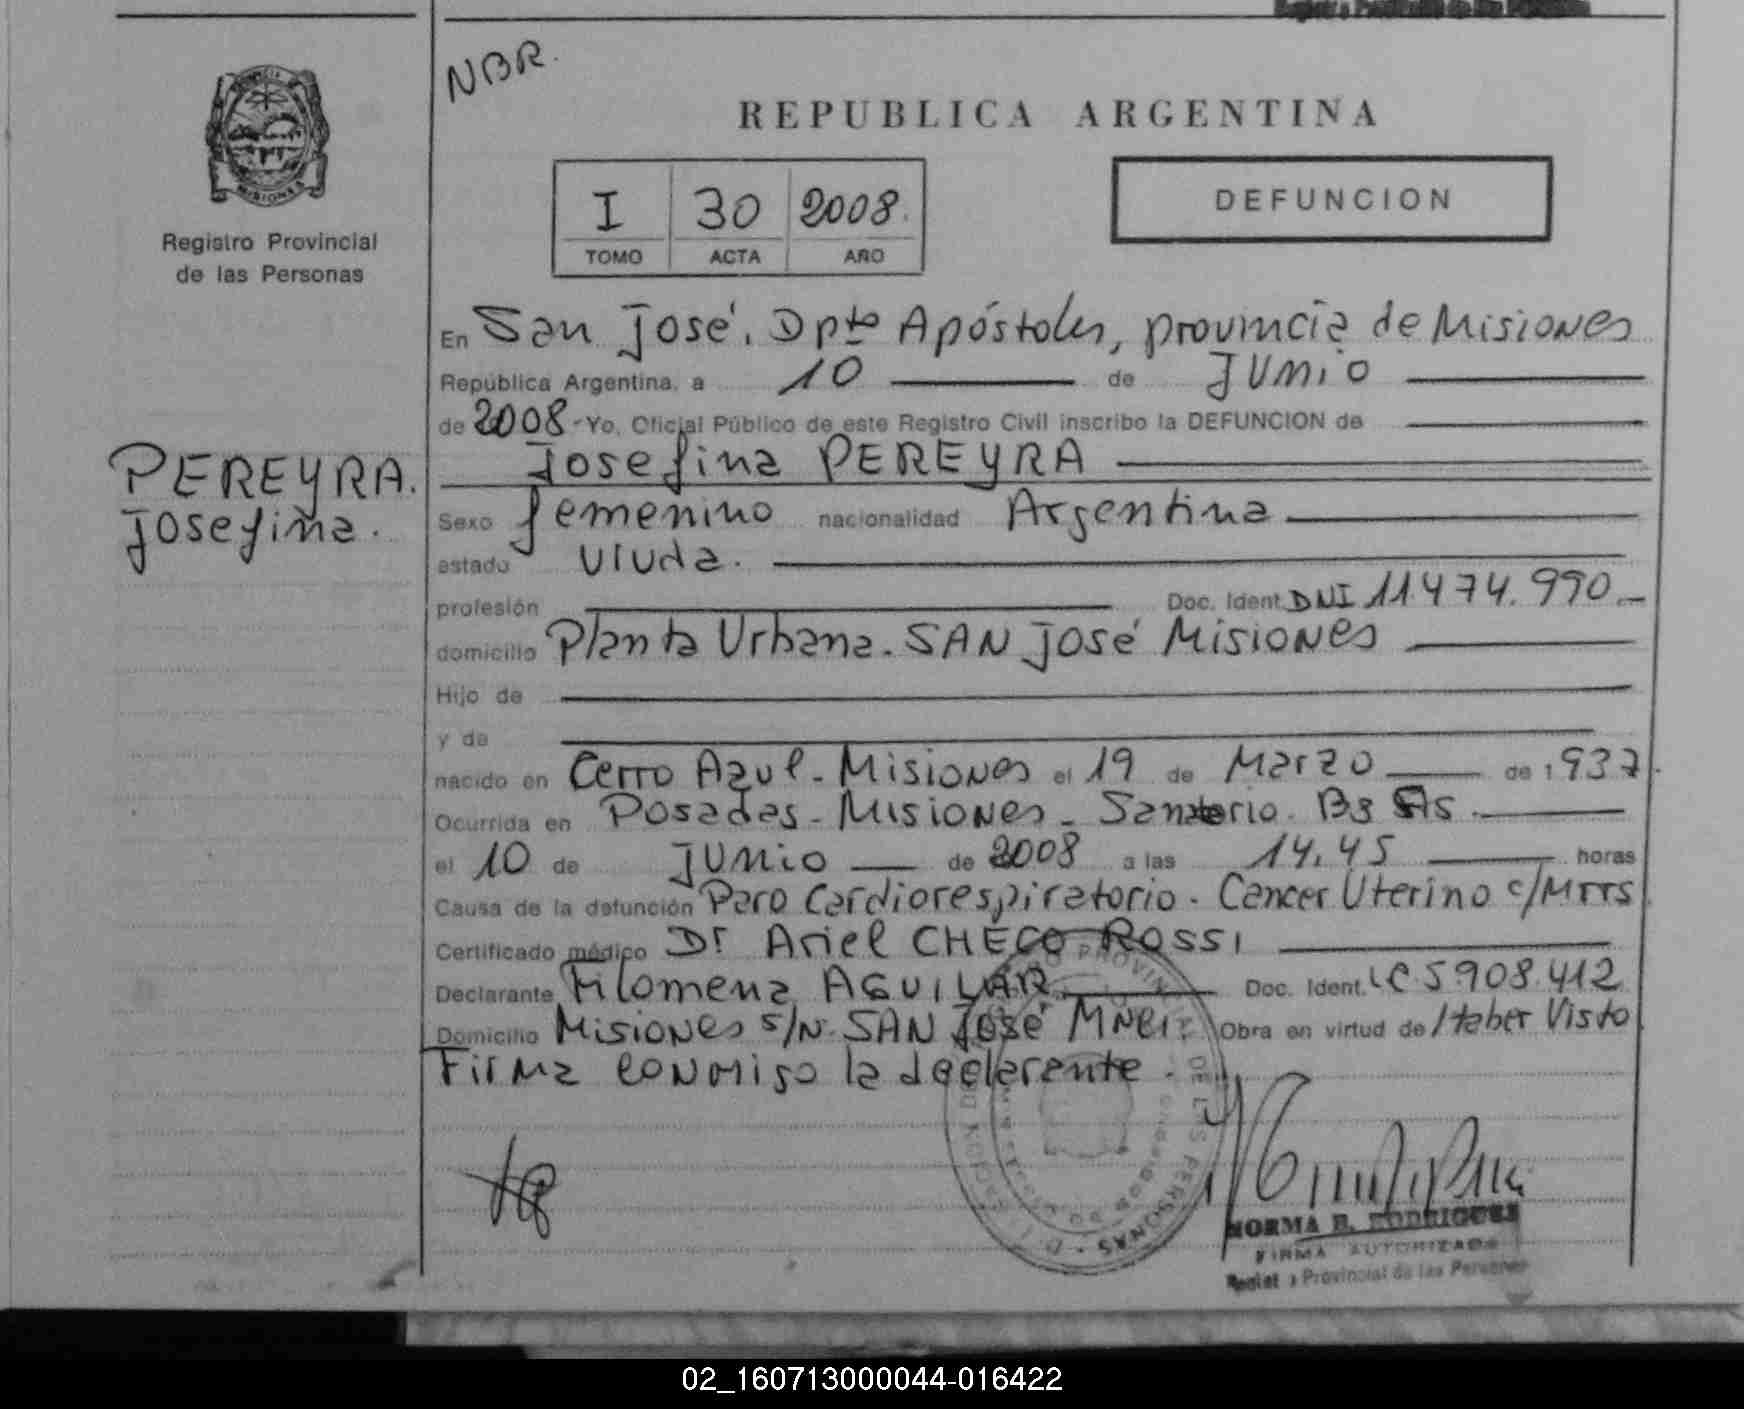 NBR.
REPUBLICA ARGENTINA
PROVINCIA DE
MISIONES
Registro Provincial
de las Personas
I 30 2008.
TOMO ACTA AÑO
DEFUNCION
En San José. Dpto Apóstoles, provincia de Misiones
República Argentina, a 10 de Junio
de 2008 - Yo, Oficial Público de este Registro Civil inscribo la DEFUNCION de
Josefina PEREYRA
PEREYRA.
Josefina.
Sexo femenino nacionalidad Argentina
estado viuda.
profesión Doc. Ident. DNI 11474.990.-
domicilio Planta Urbana. SAN José Misiones
Hijo de
y de
nacido en Cerro Azul - Misiones el 19 de Marzo de 1 937.
Ocurrida en Posadas - Misiones - Sanatorio. Bs As.
el 10 de Junio de 2008 a las 14,45 horas
Causa de la defunción Paro Cardiorespiratorio - Cancer Uterino c/MTTS
Certificado médico Dr Ariel CHECO ROSSI
Declarante Filomena AGUILAR Doc. Ident. LC 5.908.412
Domicilio Misiones s/N. SAN José Mnes. Obra en virtud de Haber Visto
Firma conmigo la declarante.
NORMA B. RODRIGUEZ
FIRMA AUTORIZADA
Registro Provincial de las Personas
02_160713000044-016422